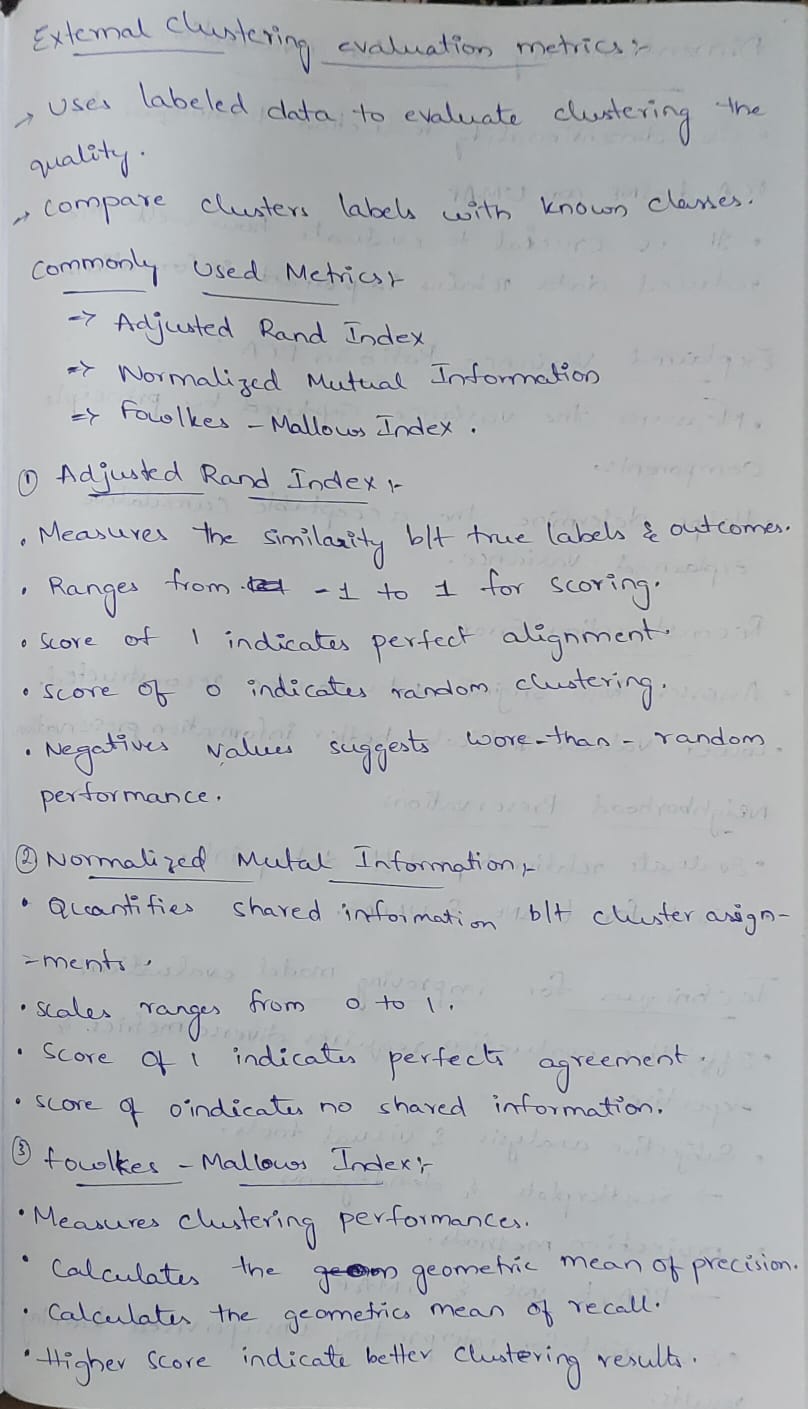 External clustering evaluation metrics :-
→ Uses labeled data to evaluate clustering the
quality.
→ Compare clusters labels with known classes.
Commonly Used Metrics :-
→ Adjusted Rand Index
⇒ Normalized Mutual Information
⇒ Fowlkes - Mallows Index .
① Adjusted Rand Index :-
• Measures the similarity b/t true labels & outcomes.
• Ranges from -1 to 1 for scoring.
• Score of 1 indicates perfect alignment.
• Score of 0 indicates random clustering.
• Negatives values suggests wore-than-random
performance.
② Normalized Mutal Information :-
• Quantifies shared information b/t cluster asign-
=ments .
• Scales ranges from 0 to 1.
• Score of 1 indicates perfects agreement .
• Score of 0 indicates no shared information.
③ fowlkes - Mallows Index :-
• Measures clustering performances.
• Calculates the geometric mean of precision.
• Calculates the geometrics mean of recall.
• Higher score indicate better clustering results.